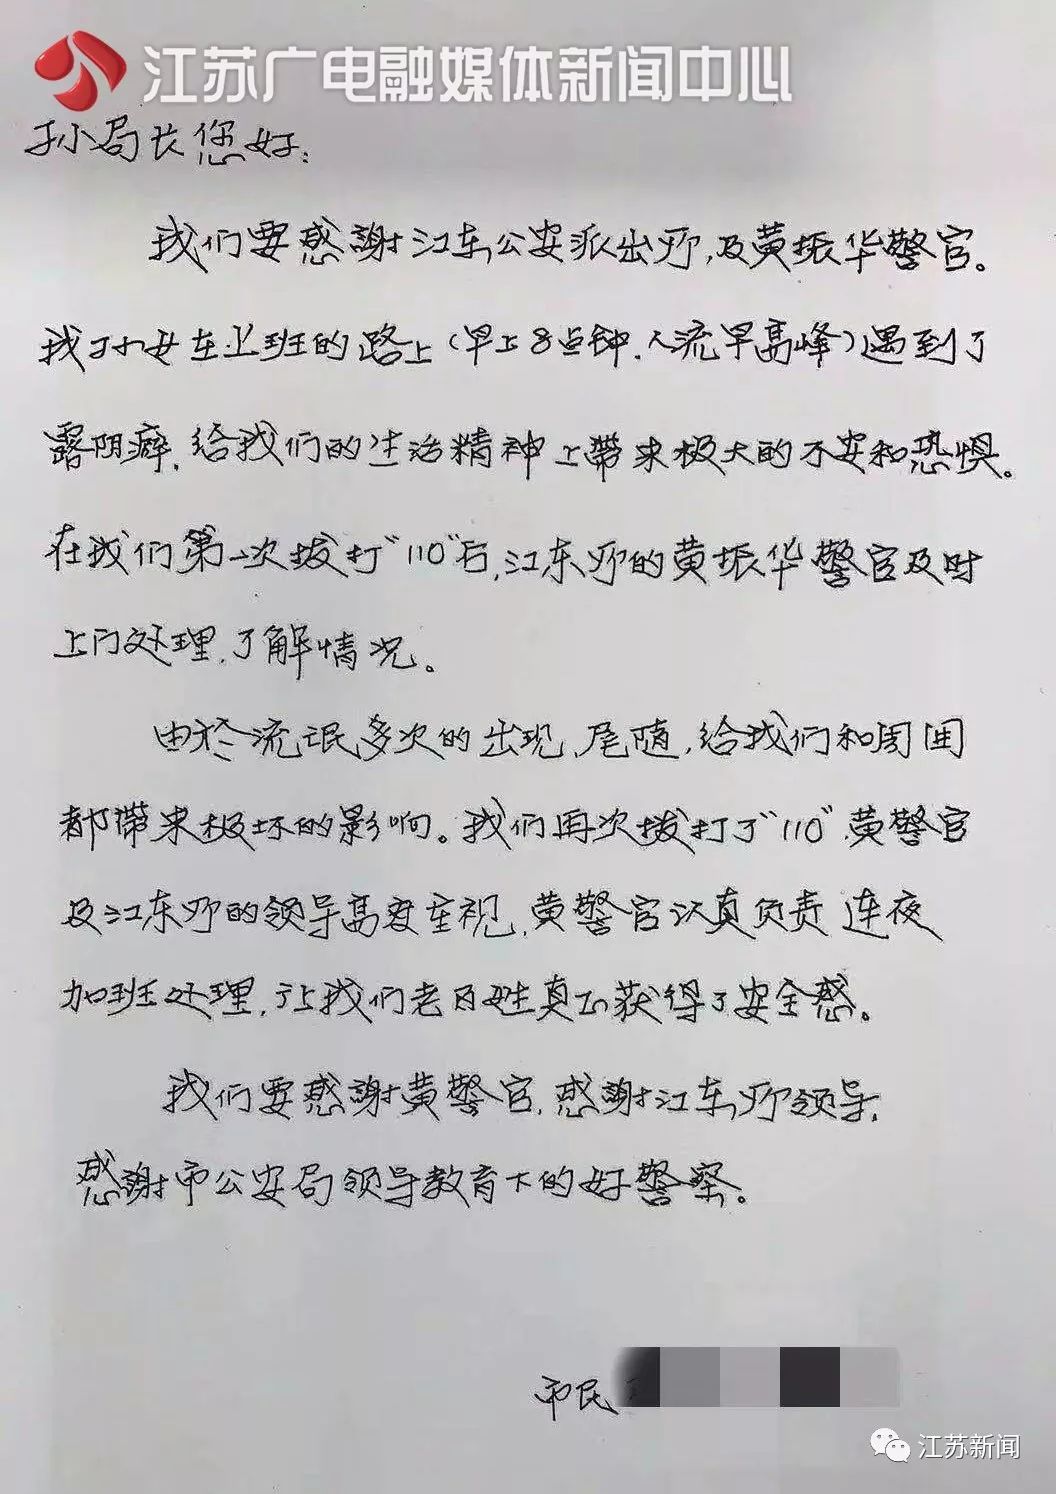 江苏广电融媒体新闻中心
孙局长您好：
我们要感謝江东公安派出所,及黄振华警官。
我小女在上班的路上(早上8点钟,人流早高峰)遇到了
露阴癖,给我们的生活精神上带来极大的不安和恐惧。
在我们第一次拨打"110"后,江东所的黄振华警官及时
上门处理,了解情况。
由於流氓多次的出现,尾随,给我们和周围
都带来极坏的影响。我们再次拨打了"110",黄警官
及江东所的领导高度重视,黄警官认真负责 连夜
加班处理,让我们老百姓真正获得了安全感。
我们要感謝黄警官,感謝江东所领导,
感謝市公安局领导教育下的好警察。
市民
江苏新闻